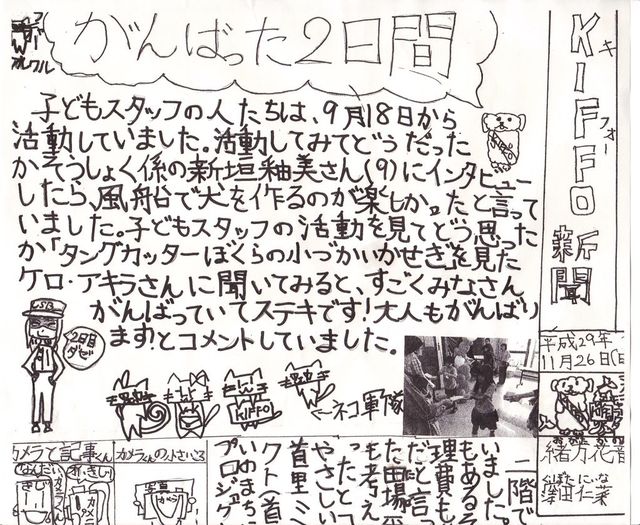 がんばった2日間
KIFFO
キッフォー
新聞
子どもスタッフの人たちは、9月18日から
活動していました。活動してみてどうだった
かそうしょく係の新垣釉美さん(9)にインタビュー
したら、風船で犬を作るのが楽しかったと言って
いました。子どもスタッフの活動を見てどう思った
か「タングカッターぼくらの小づかいかせぎ」を見た
ケロ・アキラさんに聞いてみると、すごくみなさん
がんばっていてステキです!大人もがんばり
ます!とコメントしていました。
2日目
ダゼ!
KIFFO
←ネコ軍隊
平成29年
11月26日(日
カメラて記事くん
カメラくんの小さいころ
二階で
いました
理費も
もあるそ
だと言
った
やさし
首里ミ
クト(首
いゆまち
プロジェク
緒方花音
澤田仁菜